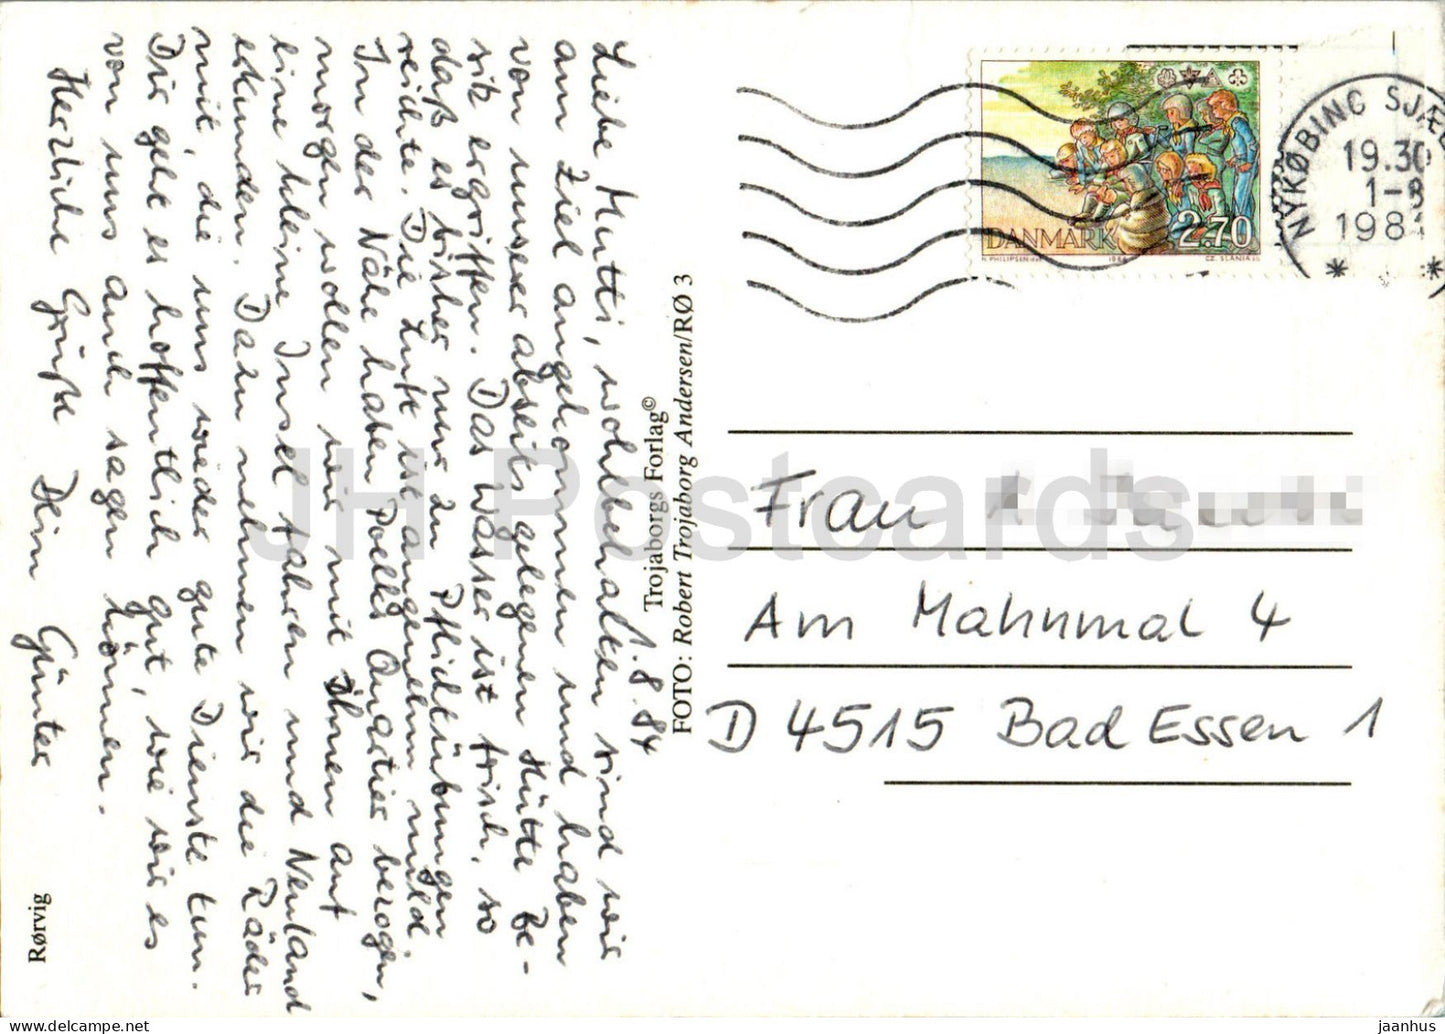 1.8.84
Liebe Mutti, wohlbehalten sind wir
am Ziel angekommen und haben
von unserer abseits gelegenen Hütte Be-
sitz ergriffen. Das Wasser ist frisch, so
daß es bisher nur zu Pflichtübungen
reichte. Die Luft ist angenehm mild.
In der Nähe haben Poells Quartier bezogen,
morgen wollen wir mit Ihnen auf
eine kleine Insel fahren und Neuland
erkunden. Dazu nehmen wir die Räder
mit, die uns wieder gute Dienste tun.
Dir geht es hoffentlich gut, wie wir es
von uns auch sagen können.
Herzliche Grüße Dein Günter
Rørvig
Trojaborgs Forlag©
FOTO: Robert Trojaborg Andersen/RØ 3
DANMARK 2.70
N. PHILIPSEN 1984 CZ. SLANIA SC.
NYKØBING SJÆL
19.30
1-8
198
Frau
Am Mahnmal 4
D 4515 Bad Essen 1
JH Postcards
jaanhus